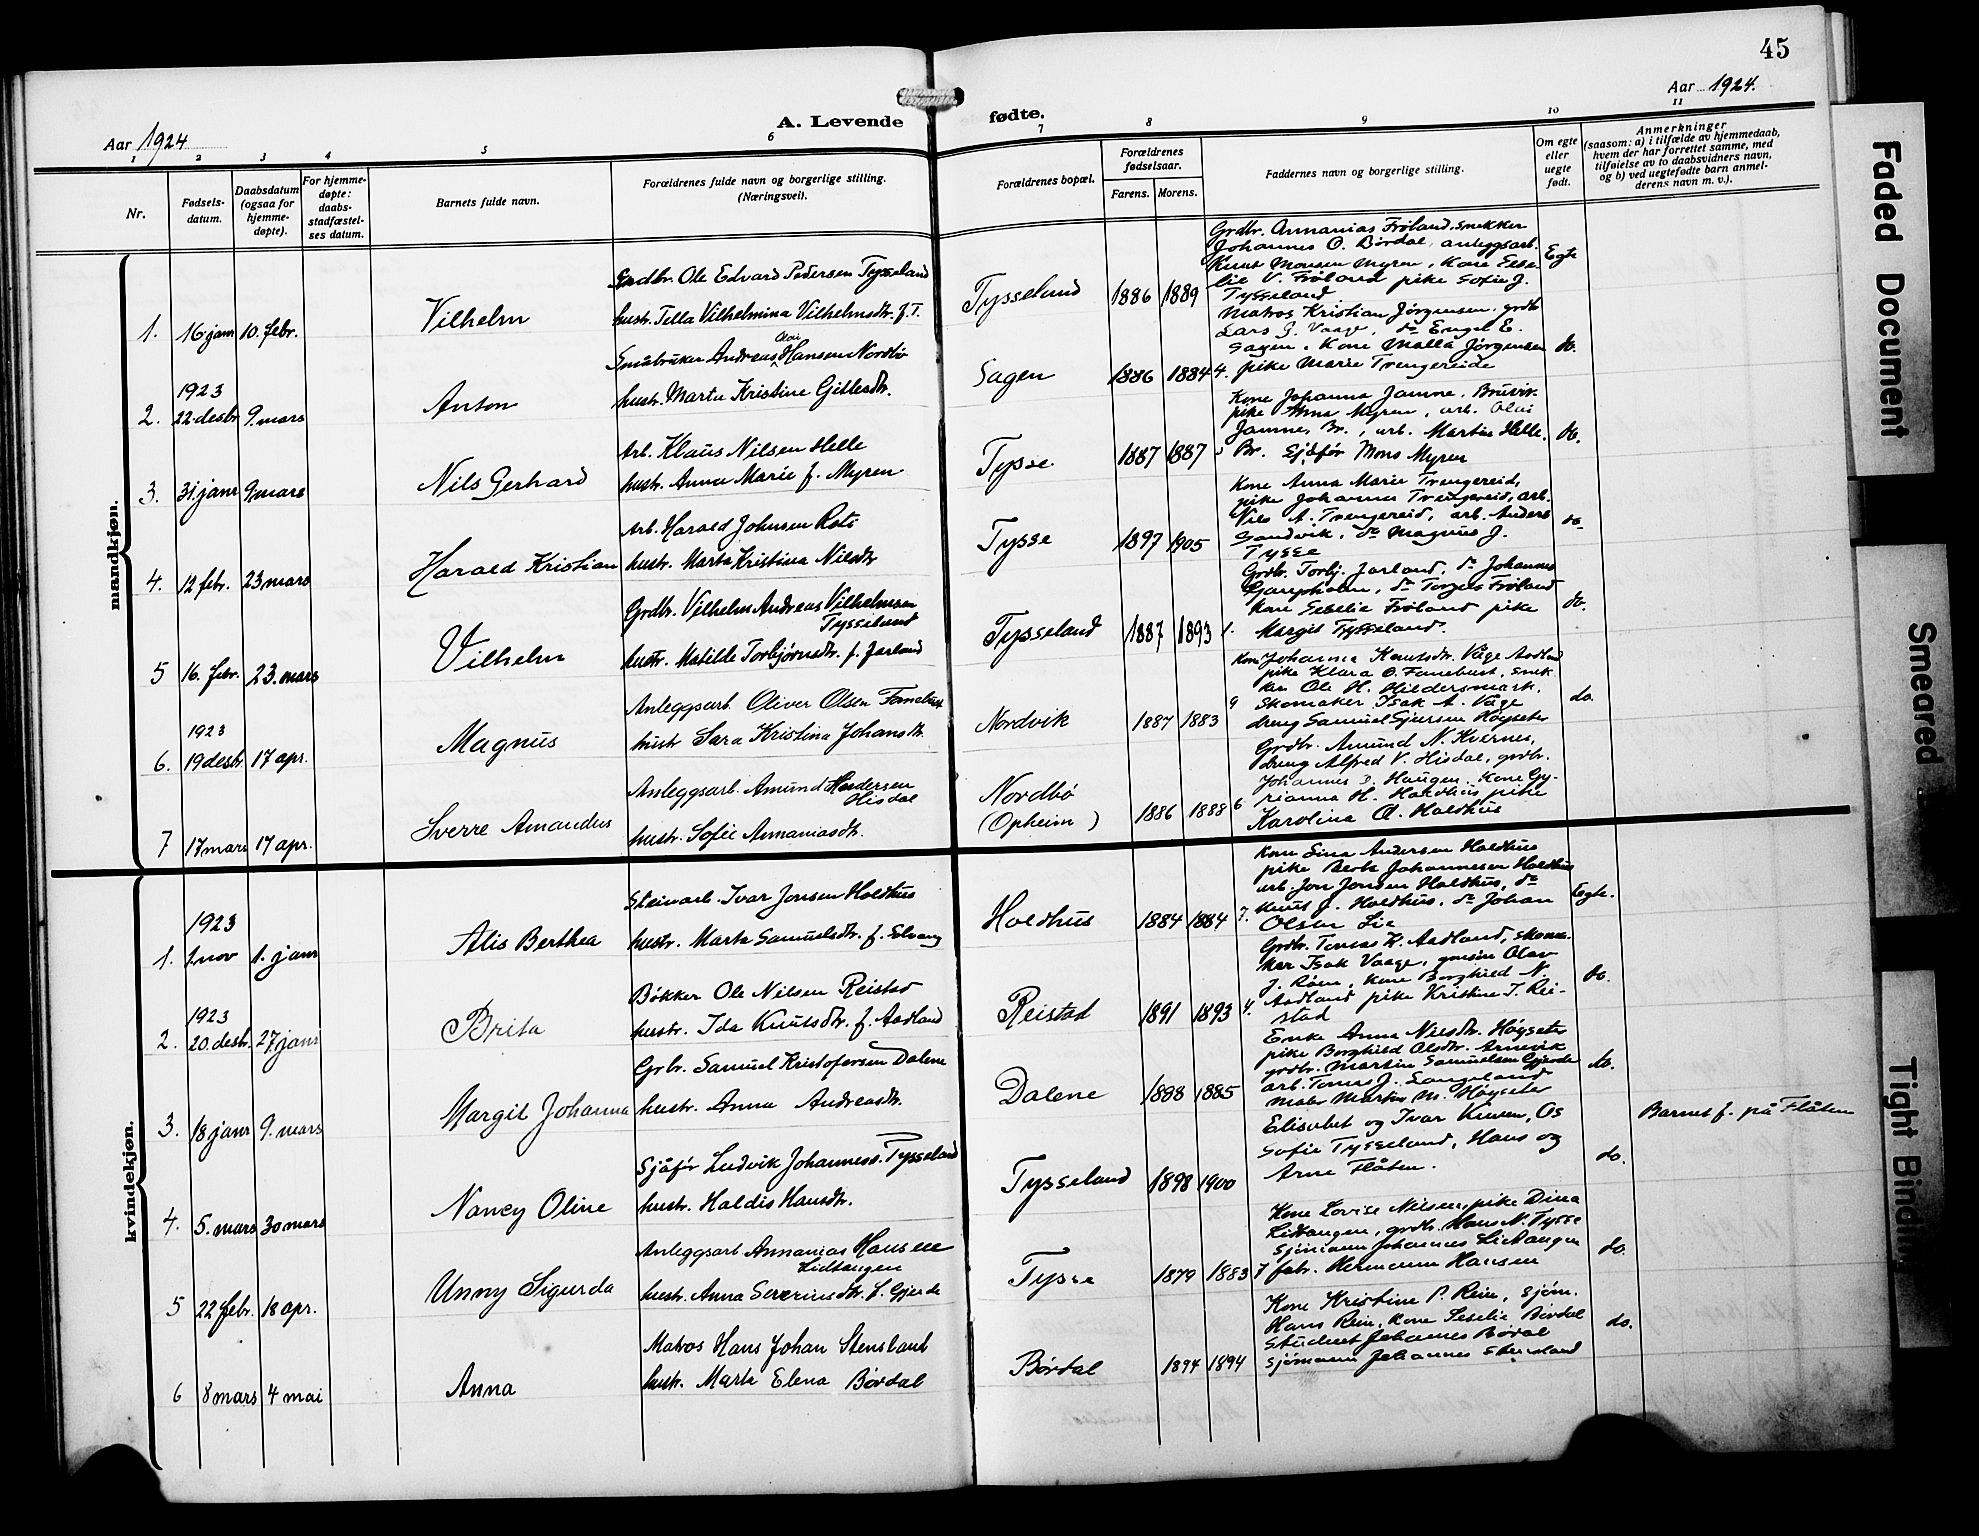 45
Aar 1924
Aar 1924.
A. Levende fødte.
1 2 3 4 5 6 7 8 9 10 11
Nr.
Fødsels-
datum.
Daabsdatum
(ogsaa for
hjemme-
døpte).
For hjemme-
døpte:
daabs-
stadfæstel-
ses datum.
Barnets fulde navn.
Forældrenes fulde navn og borgerlige stilling.
(Næringsvei).
Forældrenes bopæl.
Forældrenes
fødselsaar.
Farens. Morens.
Faddernes navn og borgerlige stilling.
Om egte
eller
uegte
født.
Anmerkninger
(saasom: a) i tilfælde av hjemmedaab,
hvem der har forrettet samme, med
tilføielse av to daabsvidners navn,
og b) ved uegtefødte barn anmel-
derens navn m. v.).
mandkjøn.
1. 16 janr 10. febr.
Vilhelm
Grdbr. Ole Edvard Pedersen Tysseland
hustr. Tella Vilhelmina Vilhelmsdtr. f. T.
Tysseland 1886 1889
Grdbr. Annanias Frøland, snekker
Johannes O. Børdal, anleggsarb.
Knut Monsen Myren, Kone Sese-
lie V. Frøland pike Sofie J.
Tysseland
Egte
2. 1923
22. desbr 9. mars
Anton
Småbruker Andreas Olai Hansen Nordbø
hustr. Marta Kristine Gillesdtr.
Sagen 1886 1884 4.
Matros Kristian Jørgensen, grdb
Lars J. Vaage, do Engel E.
Sagen, Kone Malla Jørgensen
pike Marie Trengereide
do.
3. 31. janr 9 mars
Nils Gerhard
Arb. Klaus Nilsen Helle
hustr. Anna Marie f. Myren
Tysse 1887 1887
Kone Johanna Jamne, Bruvik
pike Anna Myren, arb. Olai
Jamne, Br., arb. Martin Helle.
Br. Sjåfør Mons Myren
do.
4. 12 febr. 23 mars
Harald Kristian
Arb. Harald Johnsen Roti
hustr. Marta Kristina Nilsdtr
Tysse 1897 1905
Kone Anna Marie Trengereid,
pike Johannes Trengereid, arb.
Nils A. Trengereid, arb. Anders
Sandvik, do Magnus J.
Tysse
do.
5 16. febr. 23. mars
Vilhelm
Grdbr. Vilhelm Andreas Vilhelmsen
Tysseland
hustr. Matilde Torbjørnsdtr. f. Jarland
Tysseland 1887 1893 1.
Grdbr. Torbj. Jarland, do Johannes
do Torgils Frøland
Kone Seselie Frøland pike
Margit Tysseland.
do.
6. 1923
19 desbr. 17 apr.
Magnus
Anleggsarb. Oliver Olsen Fonnebust
hustr Sara Kristina Johansdtr.
Nordvik 1887 1883 9
Kone Johanna Knutsdtr. Våge Aadland
pike Klara O. Fonnebust, snek-
ker Ole H. Hildersmark,
Skomaker Isak A. Våge
dreng Samuel Sjursen Høyseter
do.
7 17 mars 17 apr.
Sverre Amandus
Anleggsarb. Amund Hendersen
Hisdal
hustr. Sofie Annaniasdtr.
Nordbø
(Opheim) 1886 1888 6
Grdbr. Amund N. Kvernes,
dreng Alfred V. Hisdal, grdbr.
Johannes D. Haugen, Kone Gy-
rianna H. Holdhus pike
Karolina A. Holdhus
kvindekjøn.
1. 1923
1. nov 1. janr
Alis Berthea
Steinarb. Ivar Jonsen Holdhus
hustr. Marta Samuelsdtr. f. Solvang
Holdhus 1884 1884 7.
Kone Sina Andersen Holdhus
pike Berta Johannesen Holdhus
arb. Jon Jonsen Holdhus, do
Knut J. Holdhus, do Johan
Olsen Lie
Egte.
2. 1923
20. desbr. 27. janr
Brita
Bøkker Ole Nilsen Reistad
hustr. Ida Knutsdtr. f. Aadland
Reistad 1891 1893 4.
Grdbr. Tomas K. Aadland, skoma-
ker Isak Vaage, Olav
J. Røen, Kone Borghild N.
Aadland pike Kristine J. Rei-
stad
do.
3. 18 janr 9. mars
Margit Johanna
Grbr. Samuel Kristofersen Dalene
hustr. Anna Andreasdtr.
Dalene 1888 1885
Enke Anna Nilsdtr. Høyseter
pike Borghild Olsdtr. Arnevik
grdbr. Martin Samuelsen Gjerde
arb. Tomas J. Langeland
maler Martin M. Høyseter
do.
4. 5. mars 30 mars
Nancy Oline
Sjåfør Ludvik Johanness. Tysseland
hustr. Haldis Hansdtr.
Tysseland 1898 1900
Elisabet og Ivar Kuven, Os
Sofie Tysseland, Hans og
Arne Flåten.
do.
Barnet f. på Flåten
5 22 febr. 18 apr.
Unny Sigurda
Anleggsarb Annanias Hansen
Lidtangen
hustr. Anna Severinsdtr. f. Gjerde
Tysse 1879 1883 7
Kone Lovise Nilsen, pike Dina
Lidtangen, grdb. Hans N. Tysse
Sjømann Johannes Lidtangen
fabr. Hermann Hansen
do.
6 8 mars 4 mai
Anna
Matros Hans Johan Stensland
hustr. Marta Elena Børdal
Børdal 1894 1894
Kone Kristine P. Rein, sjøm.
Hans Rein, Kone Seselie Børdal
Student Johannes Børdal
sjømann Johannes Stensland
do.
Faded Document
Smeared
Tight Bindin